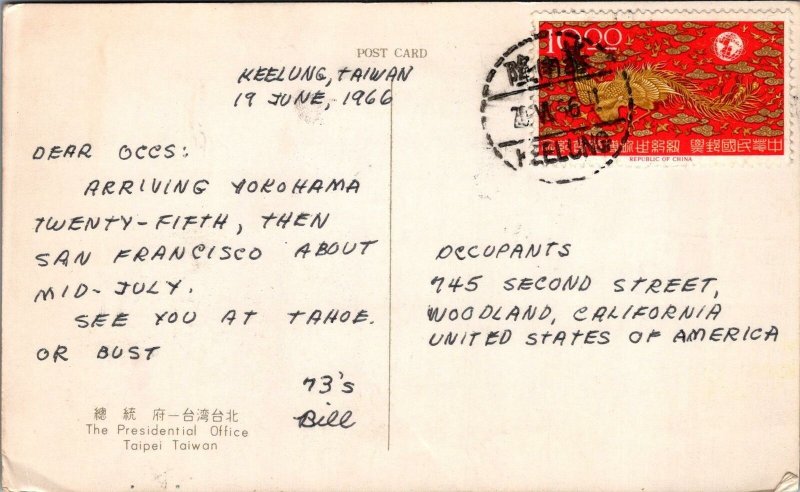 POST CARD
KEELUNG, TAIWAN
19 JUNE, 1966
DEAR OCCS:
ARRIVING YOKOHAMA
TWENTY-FIFTH, THEN
SAN FRANCISCO ABOUT
MID-JULY.
SEE YOU AT TAHOE.
OR BUST
73's
Bill
總統府一台湾台北
The Presidential Office
Taipei Taiwan
10.00
KEELUNG
中華民國郵票
REPUBLIC OF CHINA
OCCUPANTS
745 SECOND STREET,
WOODLAND, CALIFORNIA
UNITED STATES OF AMERICA